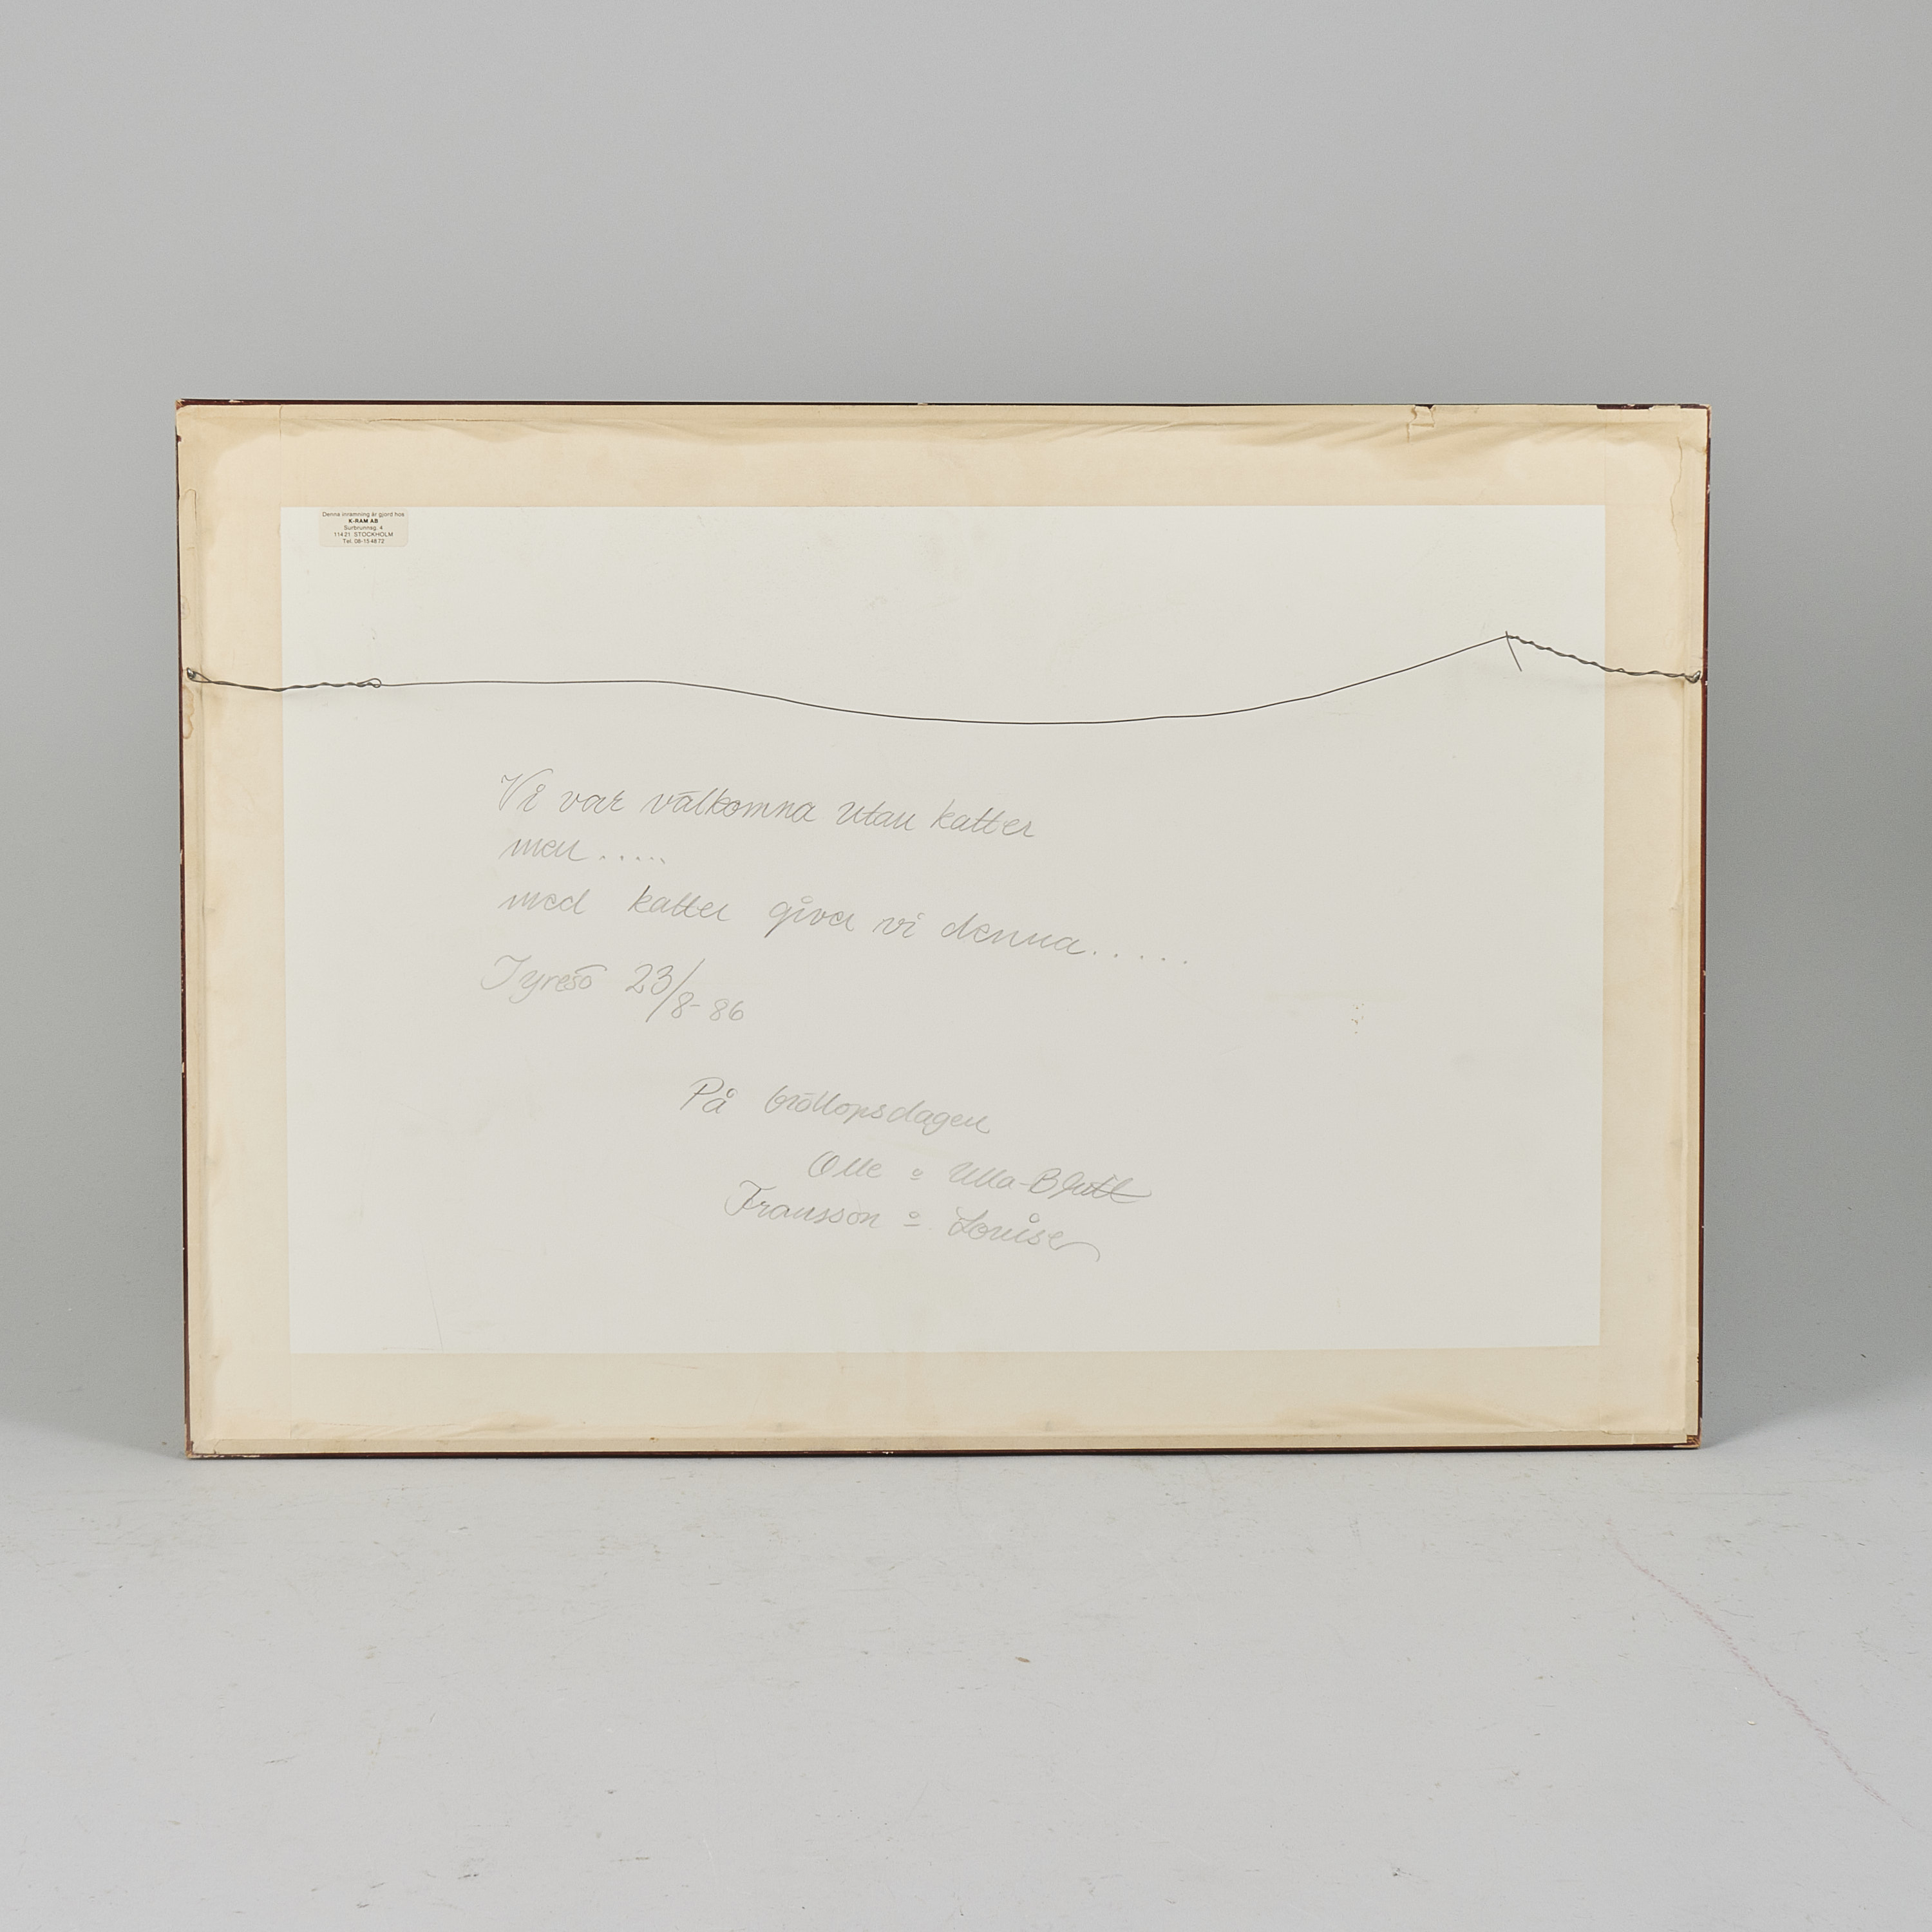 Denna inramning är gjord hos
K-RAM AB
Surbrunnsg. 4
114 21 STOCKHOLM
Tel. 08-15 48 72
Vi var välkomna utan katter
men.....
med katter giver vi denna.....
Tyresö 23/8-86
På bröllopsdagen
Olle o Ulla-Britt
Fransson o Louise